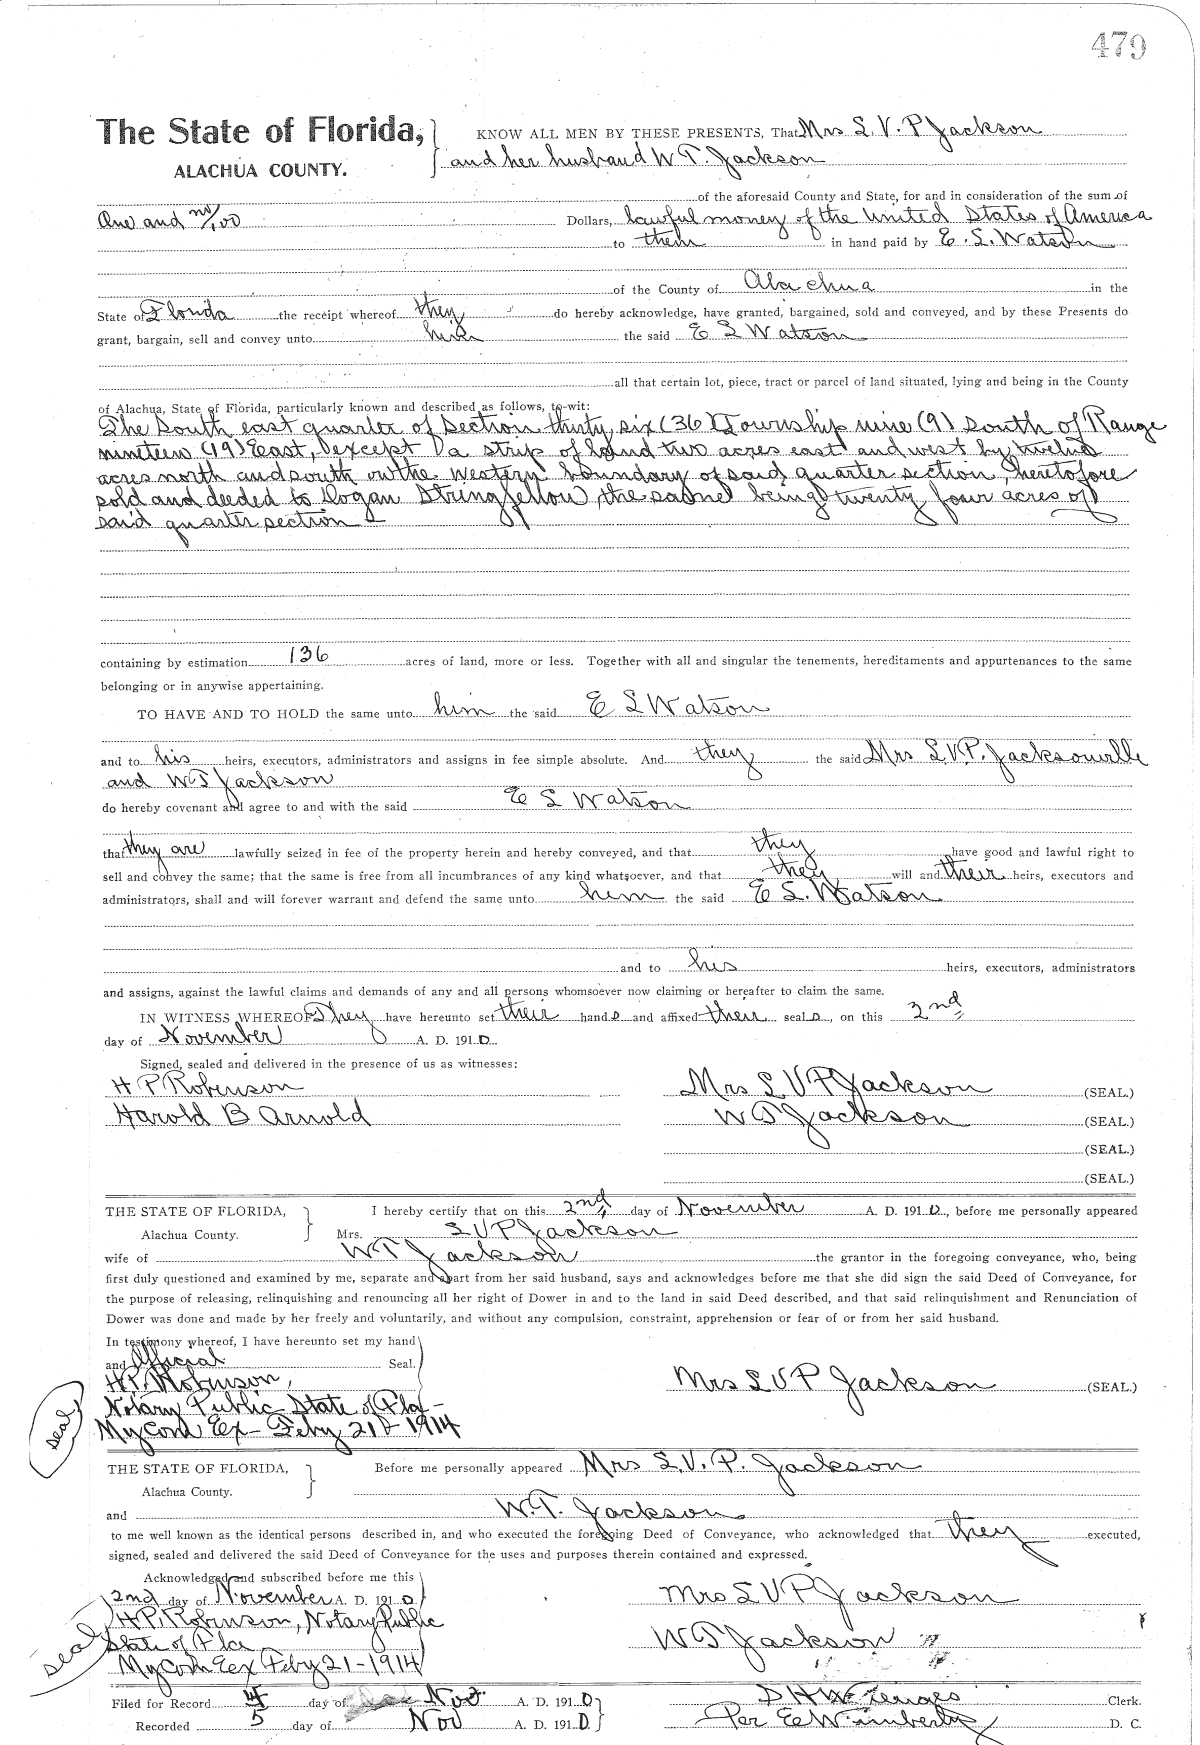 479
The State of Florida,
ALACHUA COUNTY.
KNOW ALL MEN BY THESE PRESENTS, That Mrs S. V. P Jackson
and her husband W T. Jackson
of the aforesaid County and State, for and in consideration of the sum of
One and no/100 Dollars, lawful money of the United States of America
to them in hand paid by E. S. Watson
of the County of Alachua in the
State of Florida the receipt whereof they do hereby acknowledge, have granted, bargained, sold and conveyed, and by these Presents do
grant, bargain, sell and convey unto him the said E S Watson
all that certain lot, piece, tract or parcel of land situated, lying and being in the County
of Alachua, State of Florida, particularly known and described as follows, to-wit:
The South east quarter of Section thirty six (36) Township nine (9) South of Range
nineteen (19) East, except a strip of land two acres east and west by twelve
acres north and south on the western boundary of said quarter section, heretofore
sold and deeded to Dogan Stringfellow, the same being twenty four acres of
said quarter section
containing by estimation 136 acres of land, more or less. Together with all and singular the tenements, hereditaments and appurtenances to the same
belonging or in anywise appertaining.
TO HAVE AND TO HOLD the same unto him the said E S Watson
and to his heirs, executors, administrators and assigns in fee simple absolute. And they the said Mrs S. V. P. Jacksonville
and W T Jackson
do hereby covenant and agree to and with the said E S Watson
that they are lawfully seized in fee of the property herein and hereby conveyed, and that they have good and lawful right to
sell and convey the same; that the same is free from all incumbrances of any kind whatsoever, and that they will and their heirs, executors and
administrators, shall and will forever warrant and defend the same unto him the said E S. Watson
and to his heirs, executors, administrators
and assigns, against the lawful claims and demands of any and all persons whomsoever now claiming or hereafter to claim the same.
IN WITNESS WHEREOF They have hereunto set their hand s and affixed their seal s, on this 2nd
day of November A. D. 191 0
Signed, sealed and delivered in the presence of us as witnesses:
H P Robinson Mrs S V P Jackson (SEAL.)
Harold B Arnold W T Jackson (SEAL.)
(SEAL.)
(SEAL.)
THE STATE OF FLORIDA,
Alachua County.
I hereby certify that on this 2nd day of November A. D. 191 0, before me personally appeared
Mrs. S V P Jackson
wife of W T Jackson the grantor in the foregoing conveyance, who, being
first duly questioned and examined by me, separate and apart from her said husband, says and acknowledges before me that she did sign the said Deed of Conveyance, for
the purpose of releasing, relinquishing and renouncing all her right of Dower in and to the land in said Deed described, and that said relinquishment and Renunciation of
Dower was done and made by her freely and voluntarily, and without any compulsion, constraint, apprehension or fear of or from her said husband.
In testimony whereof, I have hereunto set my hand
and Official Seal.
H. P. Robinson, Mrs S V P Jackson (SEAL.)
Notary Public State of Fla-
My Com Ex- Feby 21- 1914
seal
THE STATE OF FLORIDA,
Alachua County.
Before me personally appeared Mrs S. V. P. Jackson
and W. T. Jackson
to me well known as the identical persons described in, and who executed the foregoing Deed of Conveyance, who acknowledged that they executed,
signed, sealed and delivered the said Deed of Conveyance for the uses and purposes therein contained and expressed.
Acknowledged and subscribed before me this
2nd day of November A. D. 191 0 Mrs S V P Jackson
H P. Robinson, Notary Public
State of Fla W T Jackson
My Com Ex Feby 21-1914
seal
Filed for Record 4 day of Nov. A. D. 191 0 Clerk.
Recorded 5 day of Nov A. D. 191 0 Per E Wimberly D. C.